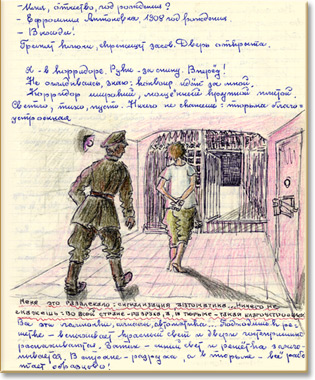 - Имя, отчество, год рождения?
- Евфросиния Антоновна, 1908 год рождения.
- Выходи!
Гремят ключи, скрежещет засов. Дверь открыта.
Я - в коридоре. Руки - за спину. Вперёд!
Не оглядываясь, знаю: идёт за мной.
Коридор широкий, крупной плитой.
Светло, тихо, пусто. Ничего не скажешь: тюрьма благо-
устроенная
Меня это развлекало: сигнализация автоматика... Ничего не
скажешь: Во всей стране - разруха, а в тюрьме - такая
Все эти лампочки, сигналы, автоматика... Подходишь к реш-
ётке - вспыхивает красный свет и двери
распахиваются. Затем - синий свет и решётка
В стране - разруха, а в тюрьме - всё рабо-
тает образцово!